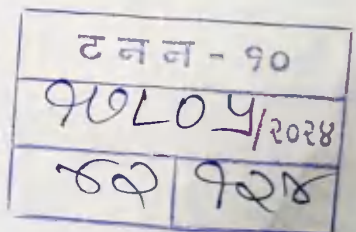 ट न न - १०
१७८०५/२०२४
४२ १२४